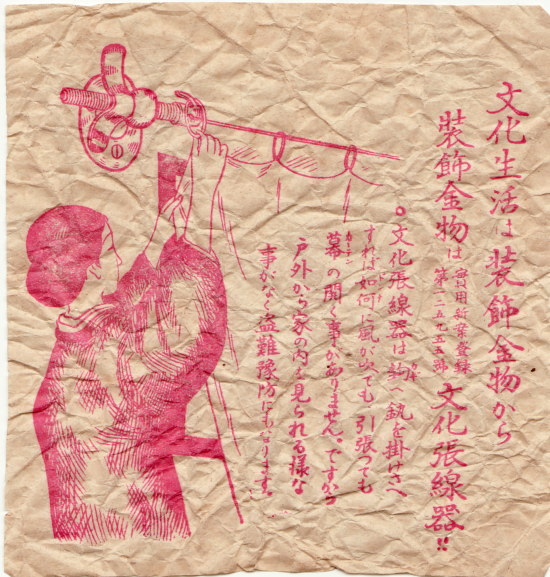 文化生活は装飾金物から
装飾金物は 實用新案登録 第一二五九五五號 文化張線器!!
○文化張線器は鈎へ釻を掛けさへ
すれば如何に風が吹ても 引張つても
幕の開く事がありません。ですから
戸外から家の内を見られる様な
事がなく盗難豫防にもなります。